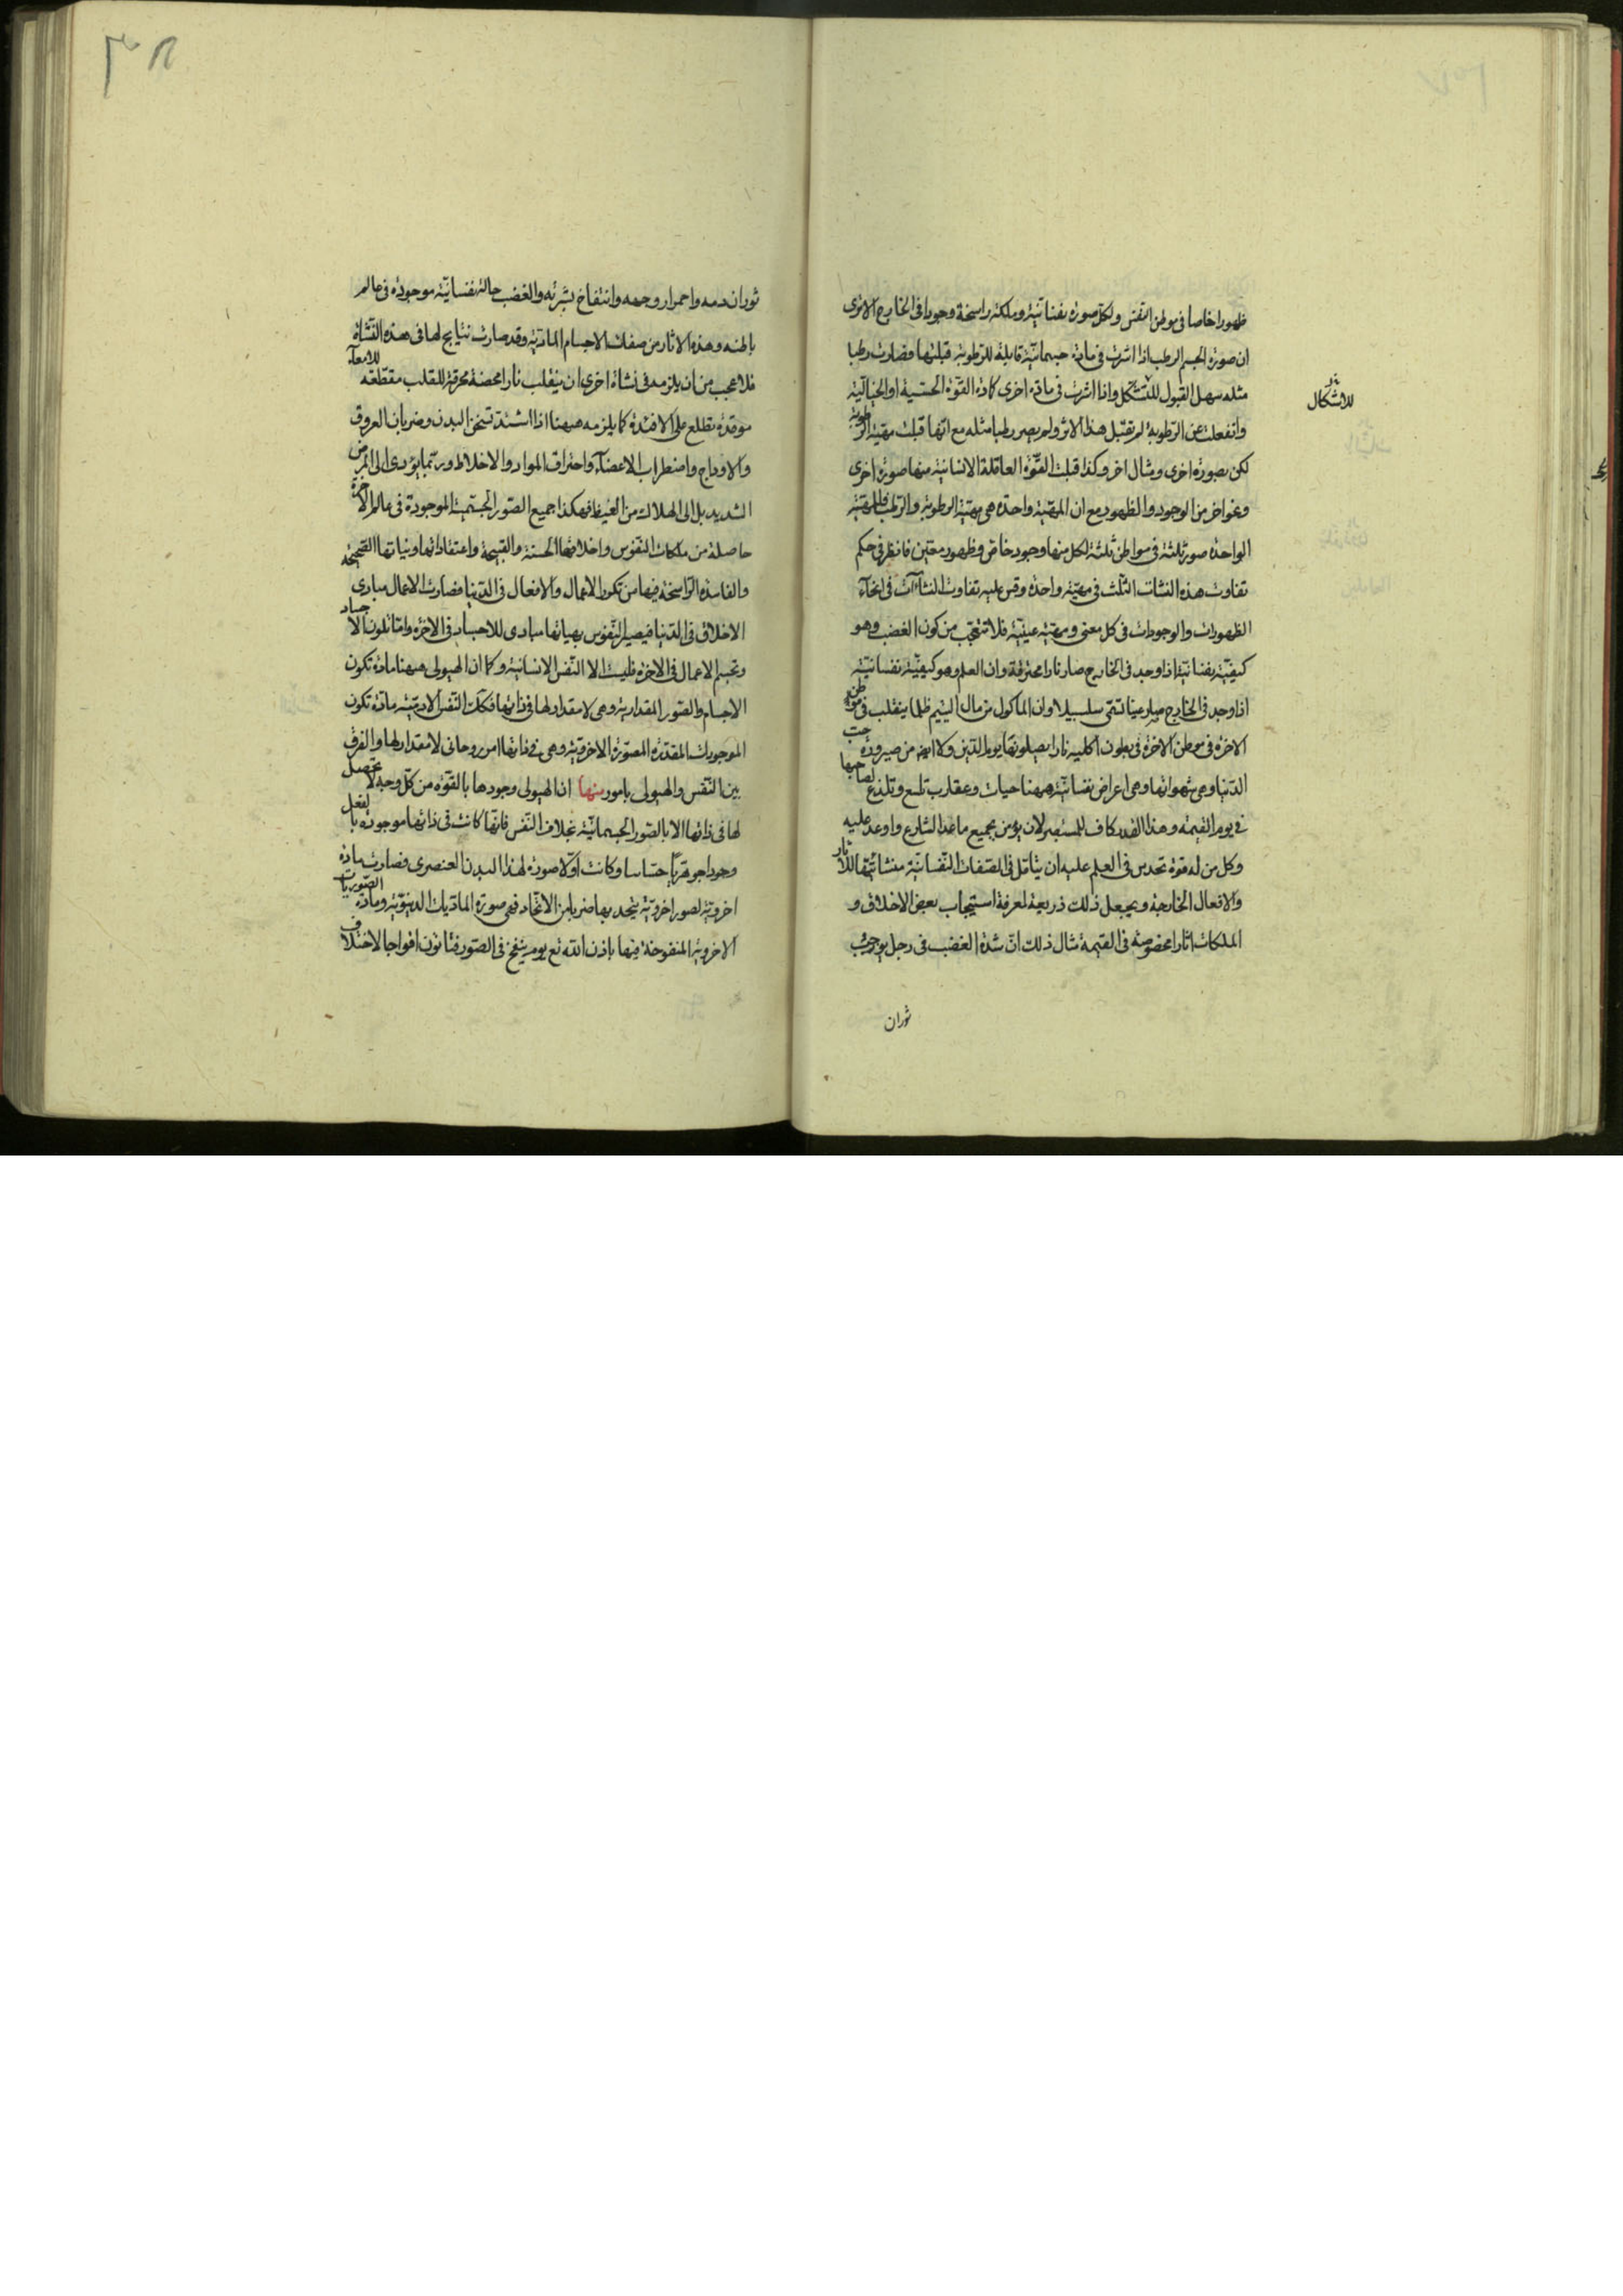 ظهورا خاصا فى موطن النفس ولكل صورة نفسانيّة وملكة راسخة وجودا فى الخارج الا ترى
ان صورة الجسم الرطب اذا اثرت فى مادة جسمانيّة قابلة للرّطوبة قبلتها فصارت رطبا
مثله سهل القبول للتشكل واذا اثرت فى مادّة اخرى كمادة القوّة الحسّية او الخياليّة
وانفعلت عن الرّطوبة لم تقبل هذا الاثر ولم يصر رطبا مثله مع انّها قبلت مهيّة الرطوبة
لكن بصورة اخرى ومثال اخر وكذا قبلت القوّة العاقلة الانسانيّة منها صورة اخرى
ونحو اخر من الوجود والظهور مع ان المهيّة واحدة هى مهيّة الرطوبة والرّطب فللمهيّة
الواحدة صور ثلثة فى مواطن ثلثة لكل منها وجود خاص وظهور معيّن فانظر فى حكم
تفاوت هذه النشات الثلث فى مهيّة واحدة وقس عليه تفاوت النشاءات فى انحاء
الظهورات والوجودات فى كل معنى ومهيّة عينيّة فلا تتعجّب من كون الغضب وهو
كيفيّة نفسانيّة اذا وجد فى الخارج صار نارا محترقة وان العلم وهو كيفيّة نفسانيّة
اذا وجد فى الخارج صار عينا تسمى سلسبيلا وان الماكول من مال اليتيم ظلما ينقلب فى موطن
الاخرة فى موطن الاخرة فى بطون اكليه نارا يصلونها يوم الدّين وكا من صيرورة حب
الدّنيا وهى شهواتها وهى اعراض نفسانيّة ههنا حيات وعقارب تلسع وتلذع لصاحبها
فى يوم القيمة وهذا القدر كاف للمستبصر لان يؤمن بجميع ما وعد الشارع واوعد عليه
وكل من له قوة تحدس فى العلم عليه ان يتامّل فى الصّفات النّفسانيّة منشائيّتها للآثار
والافعال الخارجة ويجعل ذلك ذريعة لمعرفة استيجاب بعض الاخلاق و
الملكات اثارا مخصوصة فى القيمة مثال ذلك انّ شدّة الغضب فى رجل يوجب
ثوران
للاشكال
ثوران دمه واحمرار وجهه وانتفاخ بشرته والغضب حالة نفسانيّة موجودة فى عالم
باطنه وهذه الاثار من صفات الاجسام المادّية وقد صارت نتايج لها فى هذه النّشاة
فلا عجب من ان يلزمه فى نشاة اخرى ان ينقلب نارا محضة محرقة للقلب مقطّعة للامعآء
موقدة تطلع على الافئدة كما يلزمه ههنا اذا اشتدّ تسخن البدن وضربان العروق
والاوداج واضطراب الاعضآء واحتراق المواد والاخلاط وربّما يؤدى الى المرض
الشديد بل الى الهلاك من الغيظ فهكذا جميع الصّور الجسّمية الموجودة فى عالم الاخرة
حاصلة من ملكات النفوس واخلاقها الحسنة والقبيحة واعتقاداتها ونياتها الصّحيحة
والفاسدة الرّاسخة فيها من تكرر الاعمال والافعال فى الدّنيا فصارت الاعمال مبادى
الاخلاق فى الدّنيا فيصير النّفوس بهيآتها مبادى للاجساد فى الاخرة وامّا تلون الاجساد
وتجسّم الاعمال فى الاخرة فليست الا النّفس الانسانيّة وكما ان الهيولى ههنا مادة تكون
الاجسام والصّور المقدارية وهى لا مقدار لها فى ذاتها فكذلك النّفس الادميّة مادّة تكون
الموجودات المقدّرة المصوّرة الاخرويّة وهى فى ذاتها امر روحانى لا مقدار لها والفرق
بين النّفس والهيولى بامور منها ان الهيولى وجودها بالقوّة من كل وجه لا تحصل
لها فى ذاتها الا بالصّور الجسمانيّة بخلاف النّفس فانّها كانت فى ذاتها موجودة بالفعل
وجودا جوهريّا حسّاسا وكانت اوّلا صورة لهذا البدن العنصرى فصارت مادة
اخرويّة لصور اخرويّة يتّحد بها ضربا من الاتحاد فهى صورة الماديات الدنيويّة ومادّة الصّوريات
الاخرويّة المنفوخة فيها باذن الله تع يوم ينفخ فى الصّور فتاتون افواجا لاختلاف